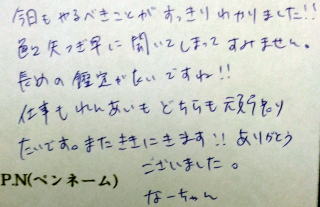 今日もやるべきことがすっきりわかりました!!
色々矢つぎ早に聞いてしまってすみません。
長めの鑑定がいいですね!!
仕事もれんあいもどちらも頑張り
たいです。またききにきます!! ありがとう
ございました。
P.N(ペンネーム)
なーちゃん